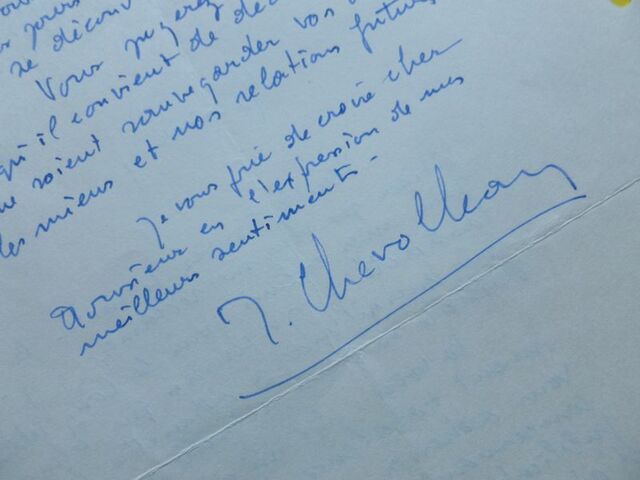 jours
se découv
Vous jugerez
qu'il convient de dé
ne soient sauvegarder vos
les miens et nos relations futures
Je vous prie de croire cher
Monsieur en l'expression de mes
meilleurs sentiments.
J. Chevolleau